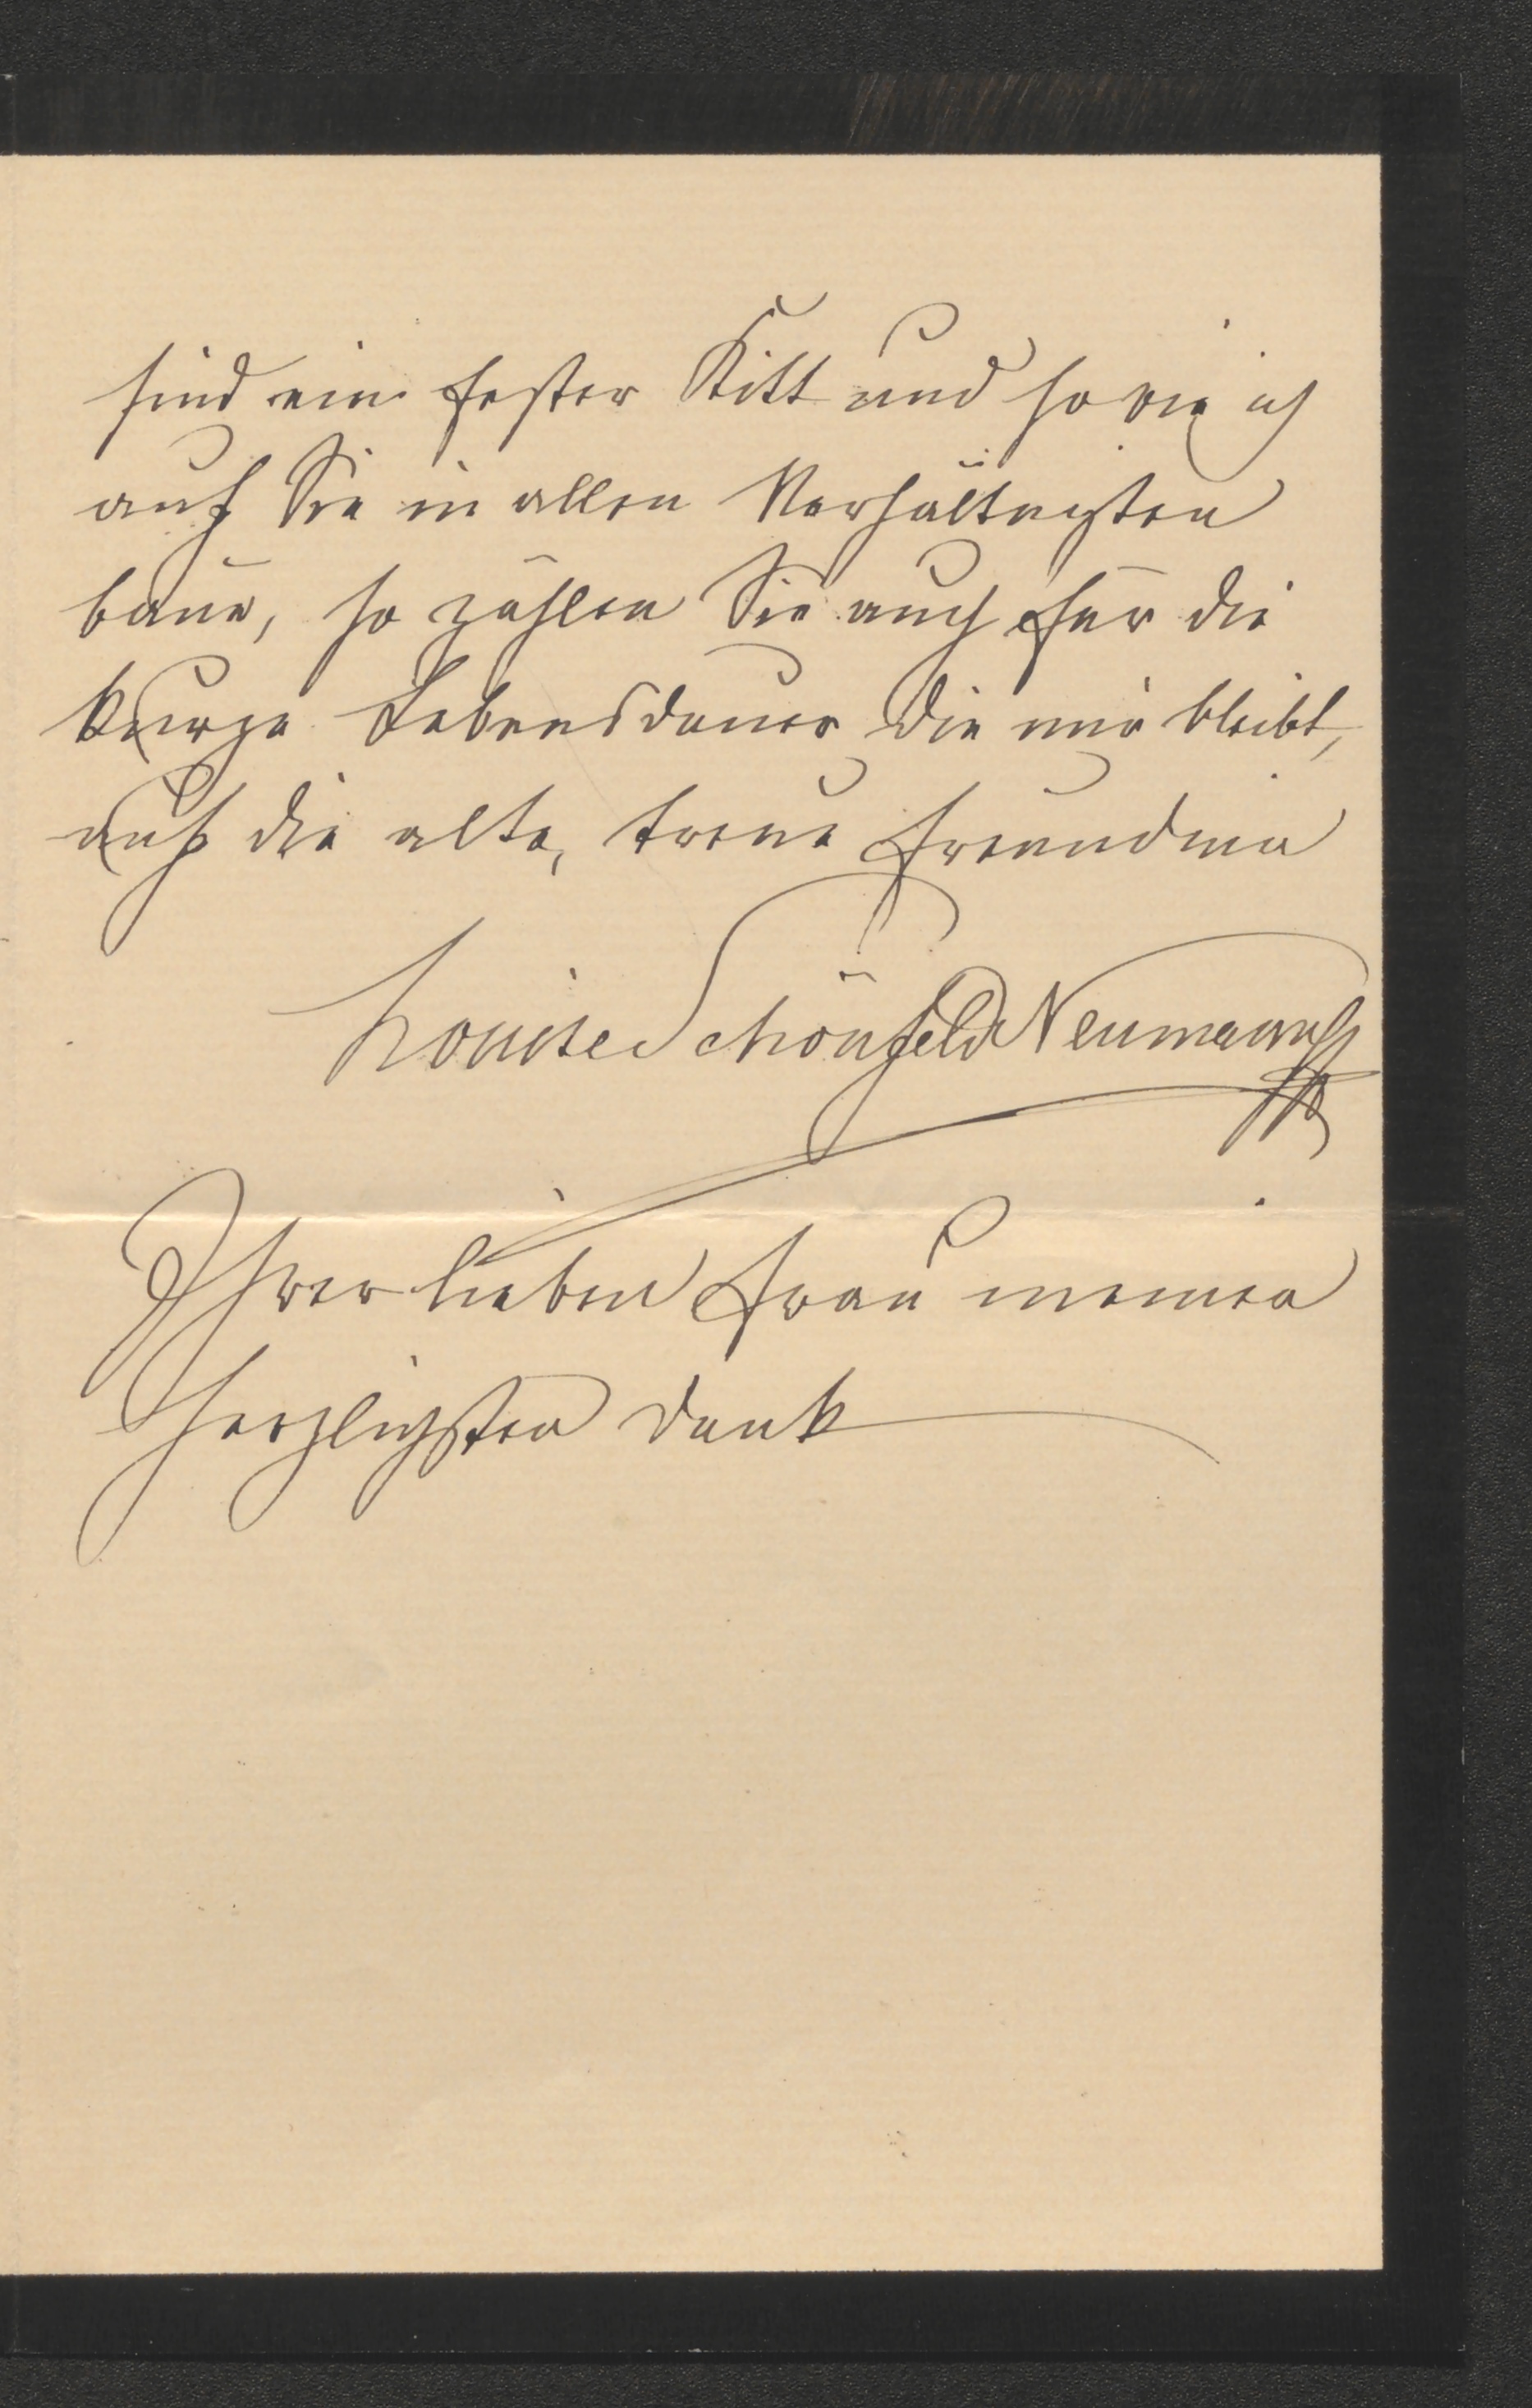 sind ein fester Kitt und so wie ich
auf Sie in allen Verhältnißen
baue, so zählen Sie auch für die
kurze Lebensdauer die mir bleibt,
auf die alte, treue Freundinn
Louise Schönfeld Neumann
Ihrer lieben Frau meinen
herzlichsten Dank